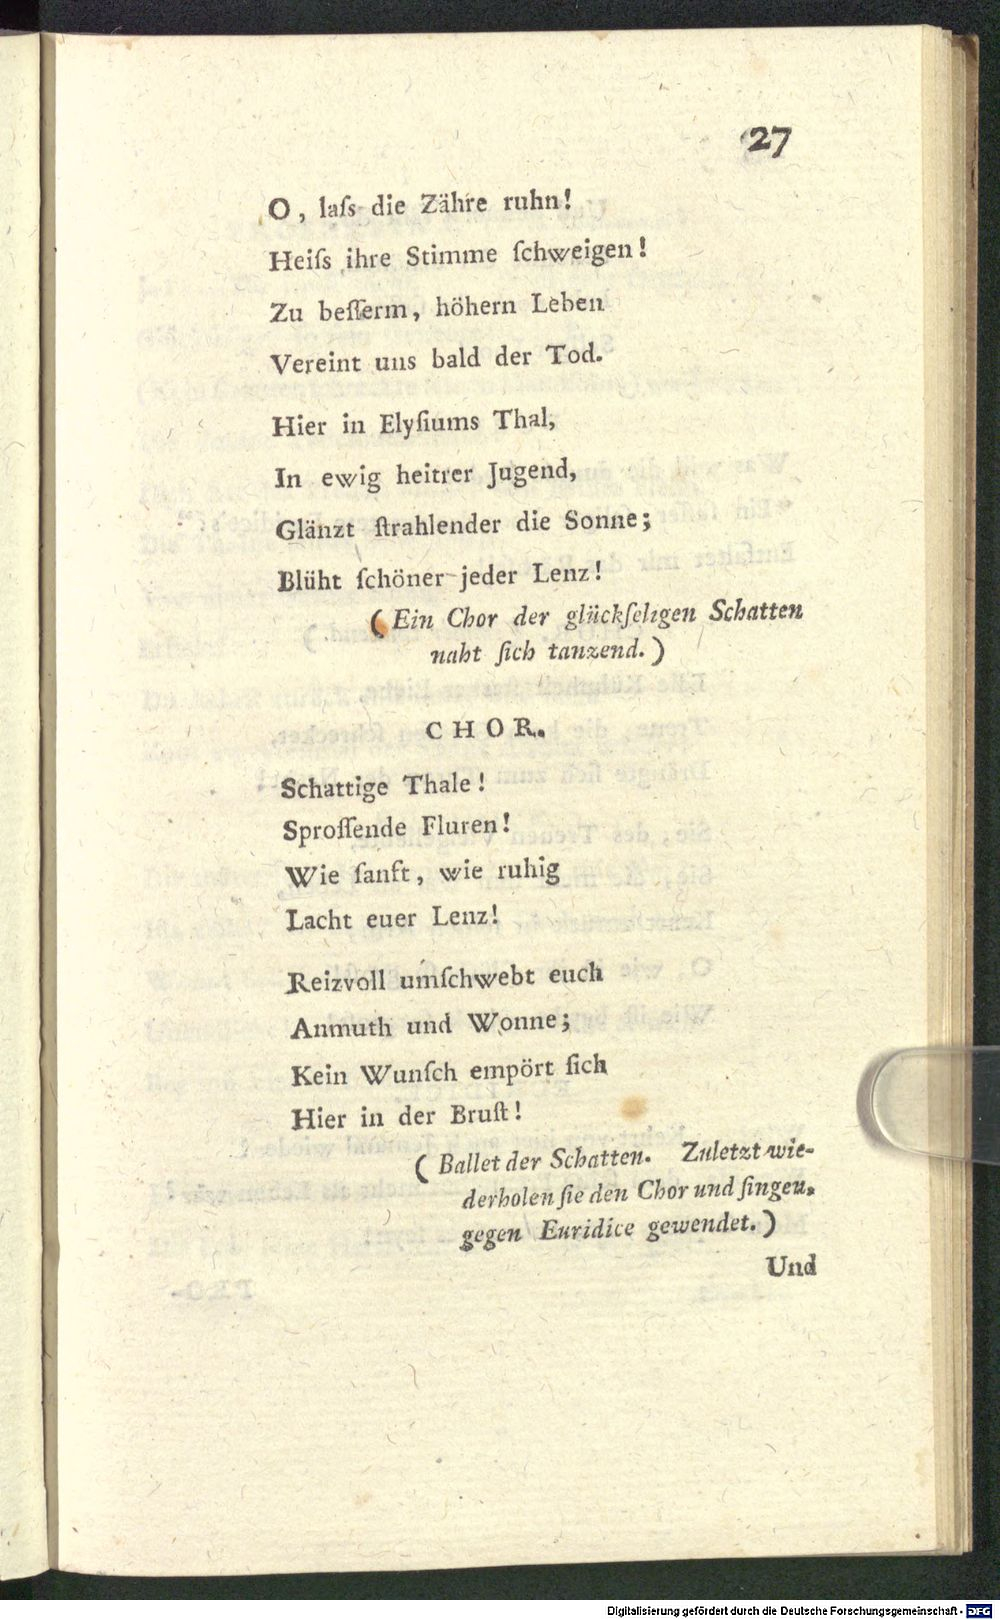 27
O, laſs die Zähre ruhn!
Heiſs ihre Stimme ſchweigen!
Zu beſſerm, höhern Leben
Vereint uns bald der Tod.
Hier in Elyſiums Thal,
In ewig heitrer Jugend,
Glänzt ſtrahlender die Sonne;
Blüht ſchöner jeder Lenz!
(Ein Chor der glückſeligen Schatten
naht ſich tanzend.)
CHOR.
Schattige Thale!
Sproſſende Fluren!
Wie ſanft, wie ruhig
Lacht euer Lenz!
Reizvoll umſchwebt euch
Anmuth und Wonne;
Kein Wunſch empört ſich
Hier in der Bruſt!
(Ballet der Schatten. Zuletzt wie-
derholen ſie den Chor und ſingen,
gegen Euridice gewendet.)
Und
Digitalisierung gefördert durch die Deutsche Forschungsgemeinschaft - DFG